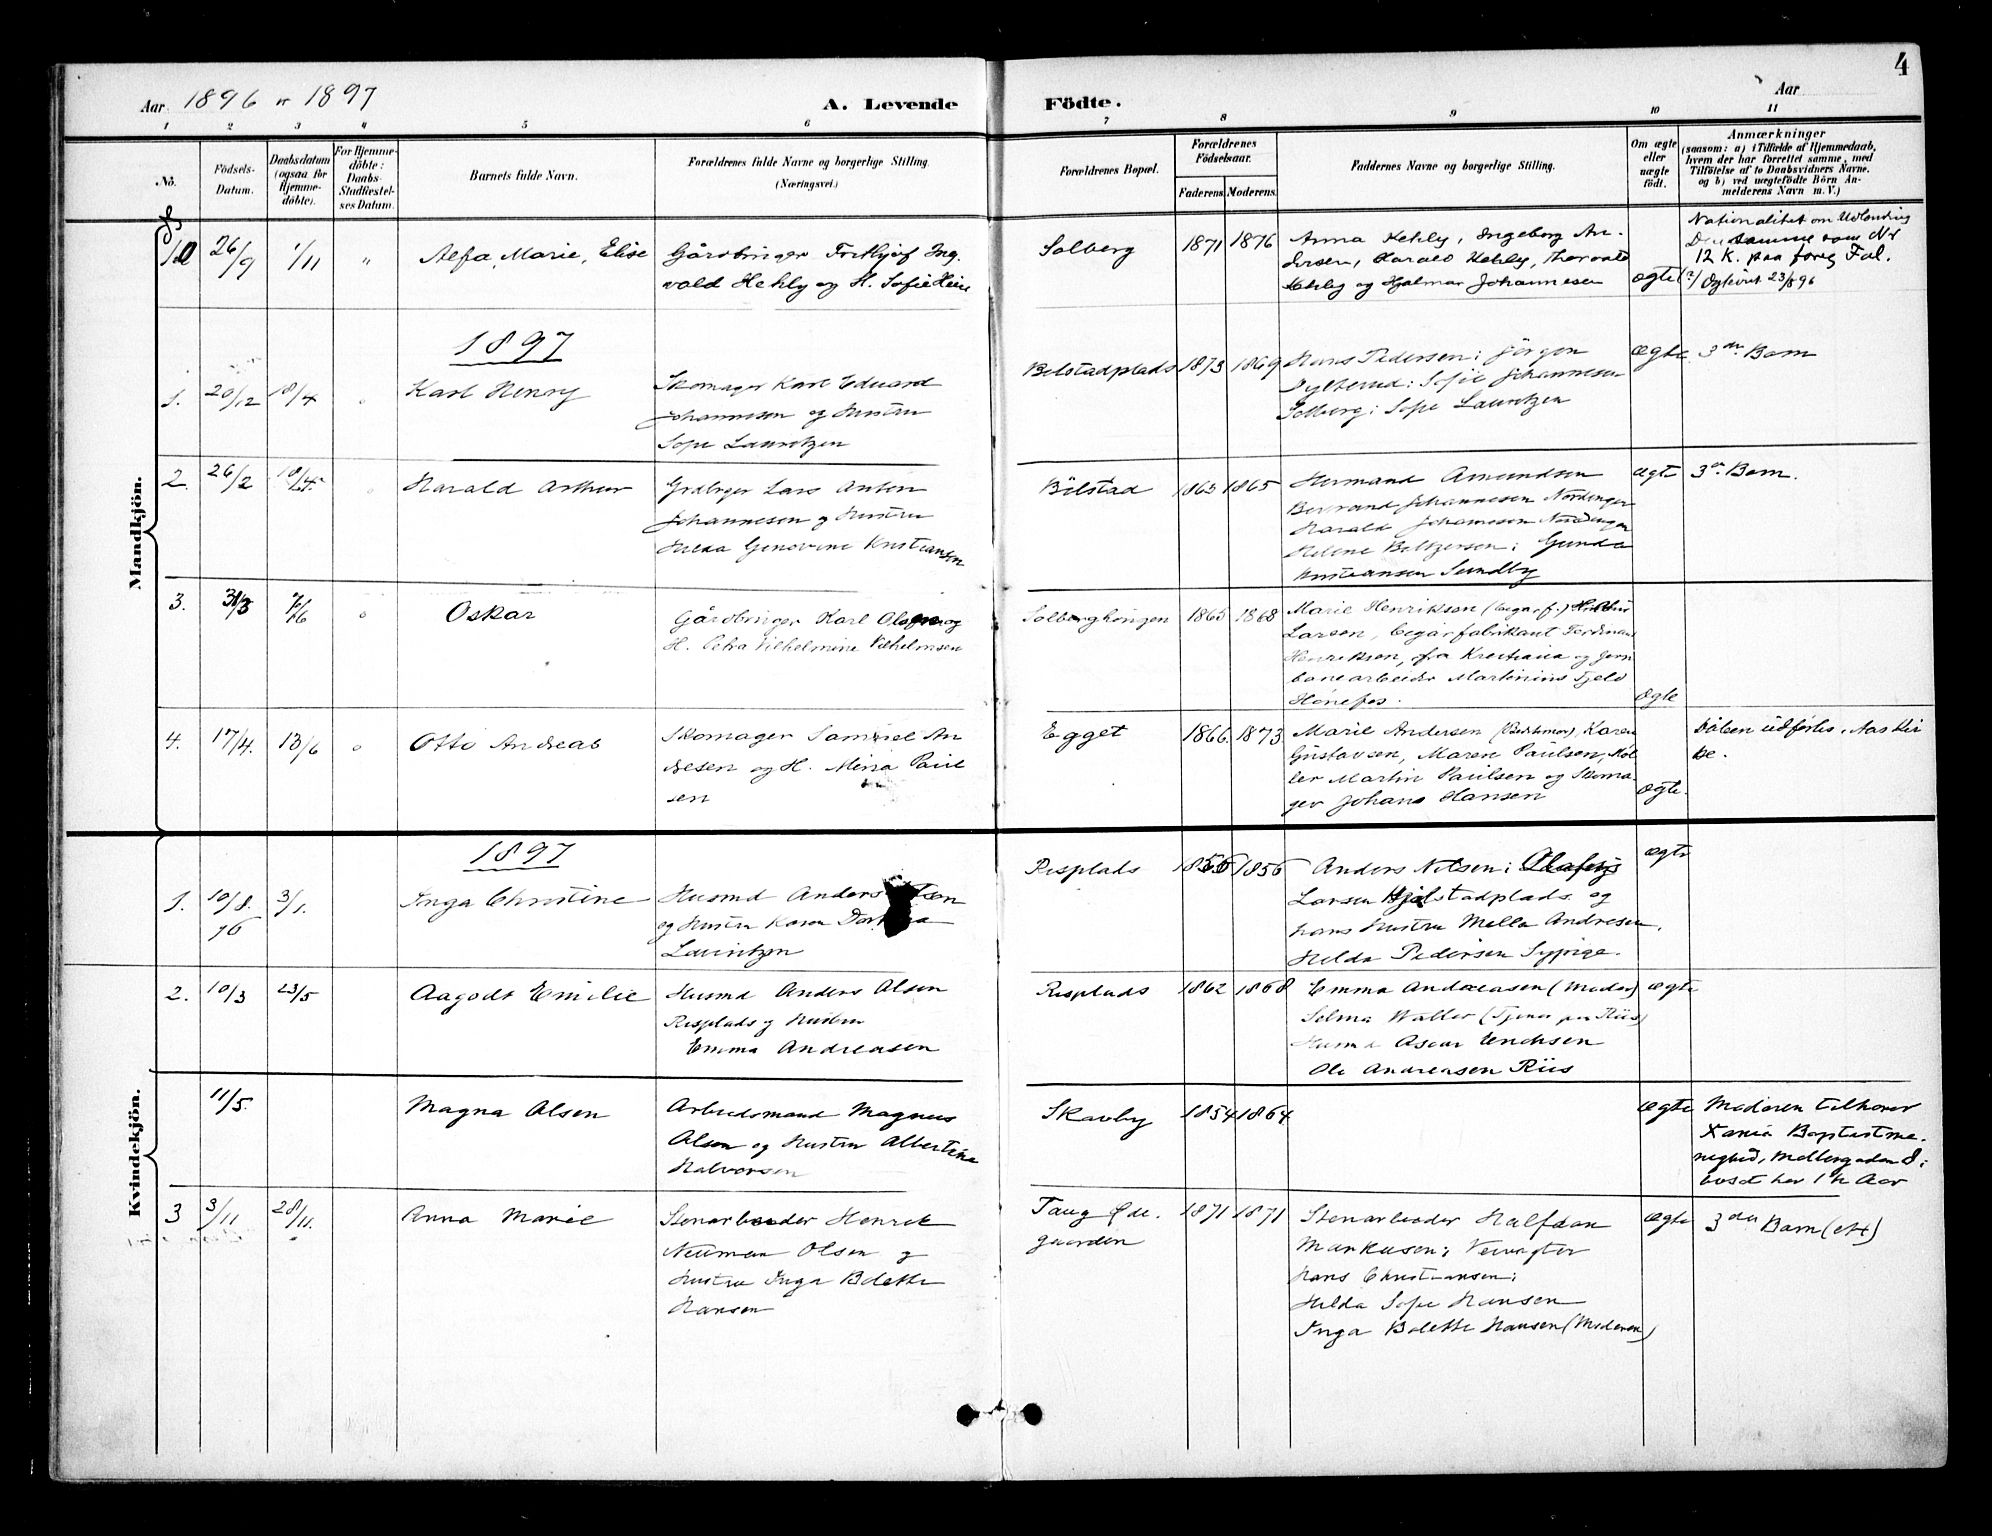 4
Aar 1896 & 1897
A. Levende Födte.
Aar
1 2 3 4 5 6 7 8 9 10 11
No.
Födsels-
Datum.
Daabsdatum
(ogsaa for
Hjemme-
döbte).
For Hjemme-
döbte:
Daabs-
Stadfæstel-
ses Datum.
Barnets fulde Navn.
Forældrenes fulde Navne og borgerlige Stilling.
(Næringsvei.)
Forældrenes Bopæl.
Forældrenes
Födselsaar.
Faderens. Moderens.
Faddernes Navne og borgerlige Stilling.
Om ægte
eller
uægte
födt.
Anmærkninger
(saasom: a) i Tilfælde af Hjemmedaab,
hvem der har forrettet samme, med
Tilföielse af to Daabsvidners Navne.
og b) ved uægtefödte Börn An-
melderens Navn m. V.)
Mandkjön.
26/9 1/11 " Alfa Marie, Elise
Gårdbruger Forthjof Ing.
vald Hehly og H. Sofie Heie
Solberg 1871 1876
Anna Hehly, Ingeborg An-
dersen, Harald Hehly, Thorvald
Hehly og Hjalmar Johannesen
ægte
Nationalitet om Udlænding
Den samme som No
12 K. paa foreg Fol.
Ægteviet 23/8 96
1897
1. 20/12 18/4 Karl Henry
Skomager Karl Eduard
Johannesen og Hustru
Sofie Lauritzen
Bilstadplads 1873 1869
Hans Pedersen; Jörgen
Sofie Johannesen
Solberg; Sofie Lauritzen
ægte 3die Barn
2. 26/2 18/4 Harald Arthur
Grdbrger Lars Anton
Johannesen og Hustru
Hilda Genovine Kristiansen
Bilstad 1863 1865
Hermand Amundsen
Bertrand Johannesen Nordengen
Harald Johannesen Nordengen
Helene Beltzersen; Gunda
Kristiansen Sundby
ægte 3die Barn.
3. 3 6/6 Oskar
Gårdbruger Karl Olafsen og
H. Petra Vilhelmine Vilhelmsen
Solberghöugen 1865 1868
Marie Henriksen (Cigarf.)
Larsen, Cigarfabrikant Ferdinan
Henriksen, fra Kristiania og Jern
banearbeider Martinius Fjeld
Hönefos.
ægte
4. 17/4. 13/6 Otto Andreas
Skomager Samuel An
dresen og H. Mina Paul
sen
Egget 1866 1873
Marie Andersen Karen
Gustavsen, Maren Paulsen, Möl
ler Martin Paulsen og Skoma
ger Johans Hansen
ægte.
Dåben udförtes i Aas Kir
ke.
Kvindekjön.
1897
1. 10/8. 96 3/1. Inga Christine
Husmd Anders
og Hustru Karen
Lauritzen
Risplads 1856
Anders Nilsen;
Larsen Hjelstadplads og
hans Hustru Mella Andresen.
Hilda Pedersen Sypige.
ægte
2. 10/3 23/5 Aagodt Emilie
Husmd Anders Olsen
Risplads og Hustru
Emma Andreasen
Risplads 1862 1868
Emma Andreasen (Moder)
Selma Walter (Tjener paa Riis)
Husmd Oscar Erichsen
Ole Andreasen Riis
ægte
11/5. Magna Olsen
Arbeidsmand Magnus
Olsen og Hustru Albertine
Halvorsen
Skavby 1854 1864
ægte
Moderen tilhører
Xania Baptistme-
nighed, Möllergaden 8;
bosat her 1½ Aar
3 3/11 28/11. Anna Marie
Stenarbeider Henrik
Neuman Olsen og
Hustru Inga Bolette
Hansen
Taug Öde.
gaarden 1871 1871
Stenarbeider Halfdan
Markusen; Veivogter
Hans Christiansen;
Hilda Sofie Hansen
Inga Bolette Hansen (Moderen)
ægte 3die Barn